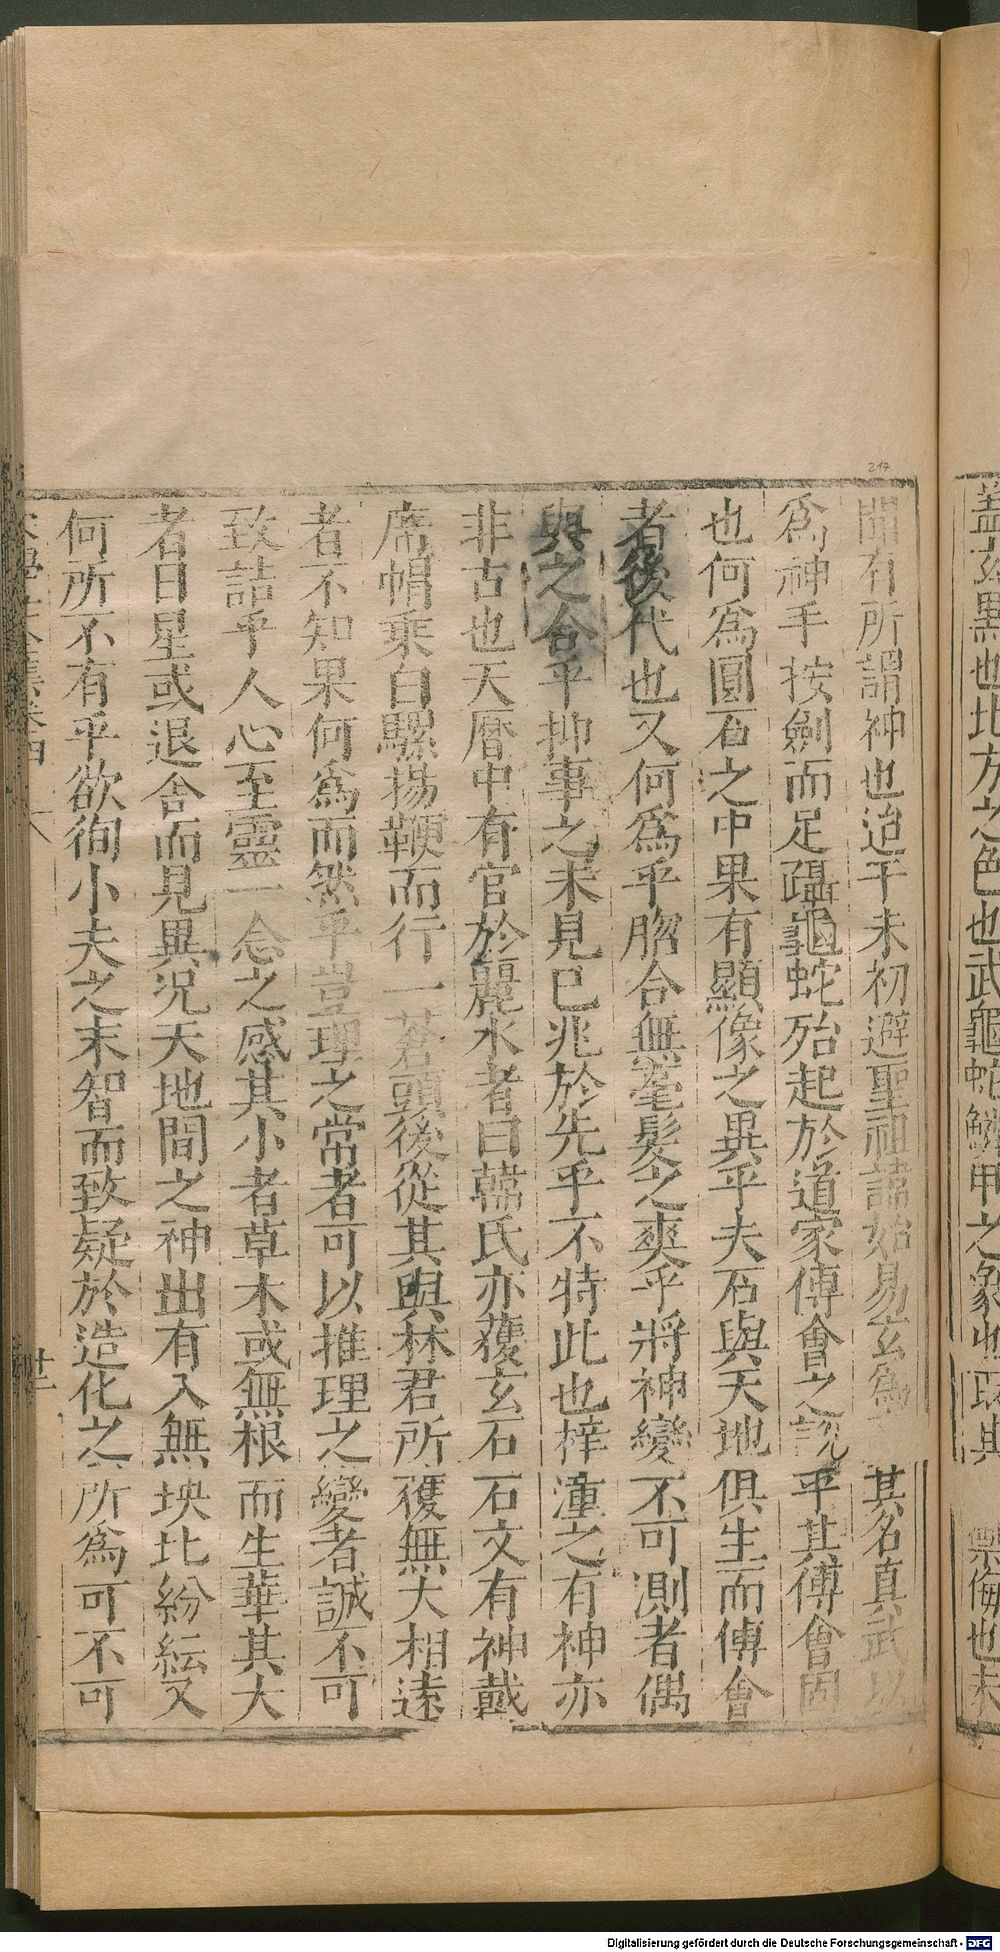 蓋玄黑也北方之色也武龜蛇鱗甲之象也既其 禦侮也未
聞有所謂神也迨干未初避聖祖諱始易玄爲 其名真武以
爲神手按劍而足躡龜蛇殆起於道家傅會之說乎其傅會固
也何爲圓石之中果有顯像之異乎夫石與天地俱生而傅會
者後代也又何爲乎脗合無毫髮之爽乎將神變不可測者偶
與之合乎抑事之未見已兆於先乎不特此也梓潼之有神亦
非古也天曆中有官於麗水者曰韓氏亦獲玄石石文有神戴
席帽乘白騾揚鞭而行一蒼頭後從其與林君所獲無大相遠
者不知果何爲而然乎豈理之常者可以推理之變者誠不可
致詰乎人心至靈一念之感其小者草木或無根而生華其大
者日星或退舍而見異況天地間之神出有入無坱圠紛紜又
何所不有乎欲徇小夫之末智而致疑於造化之所爲可不可
宋學士全集卷四
廿三
217
Digitalisierung gefördert durch die Deutsche Forschungsgemeinschaft - DFG